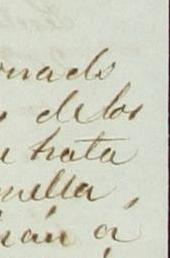 onado
delos
e trata
quella,
rán a